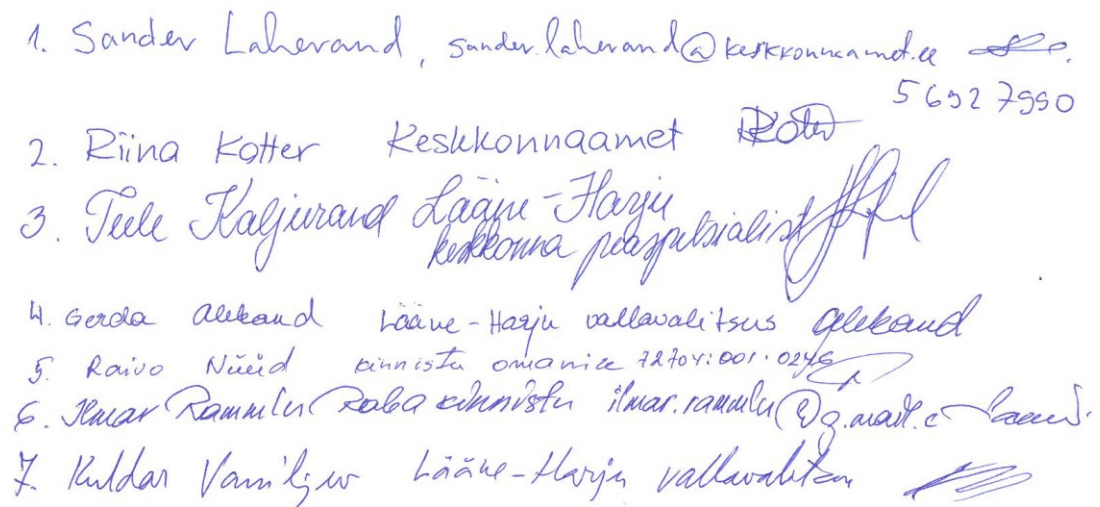 1. Sander Laherand, sander.laherand@keskkonnaamet.ee
56927990
2. Riina Kotter Keskkonnaamet RKotter
3. Teele Kaljurand Lääne-Harju
keskkonna peaspetsialist
4. Gerda Alekand Lääne-Harju vallavalitsus Alekand
5. Raivo Nüüd kinnistu omanice 72704:001:0246
6. Ilmar Rammler Raba kinnistu
7. Kuldar Lääne-Harju